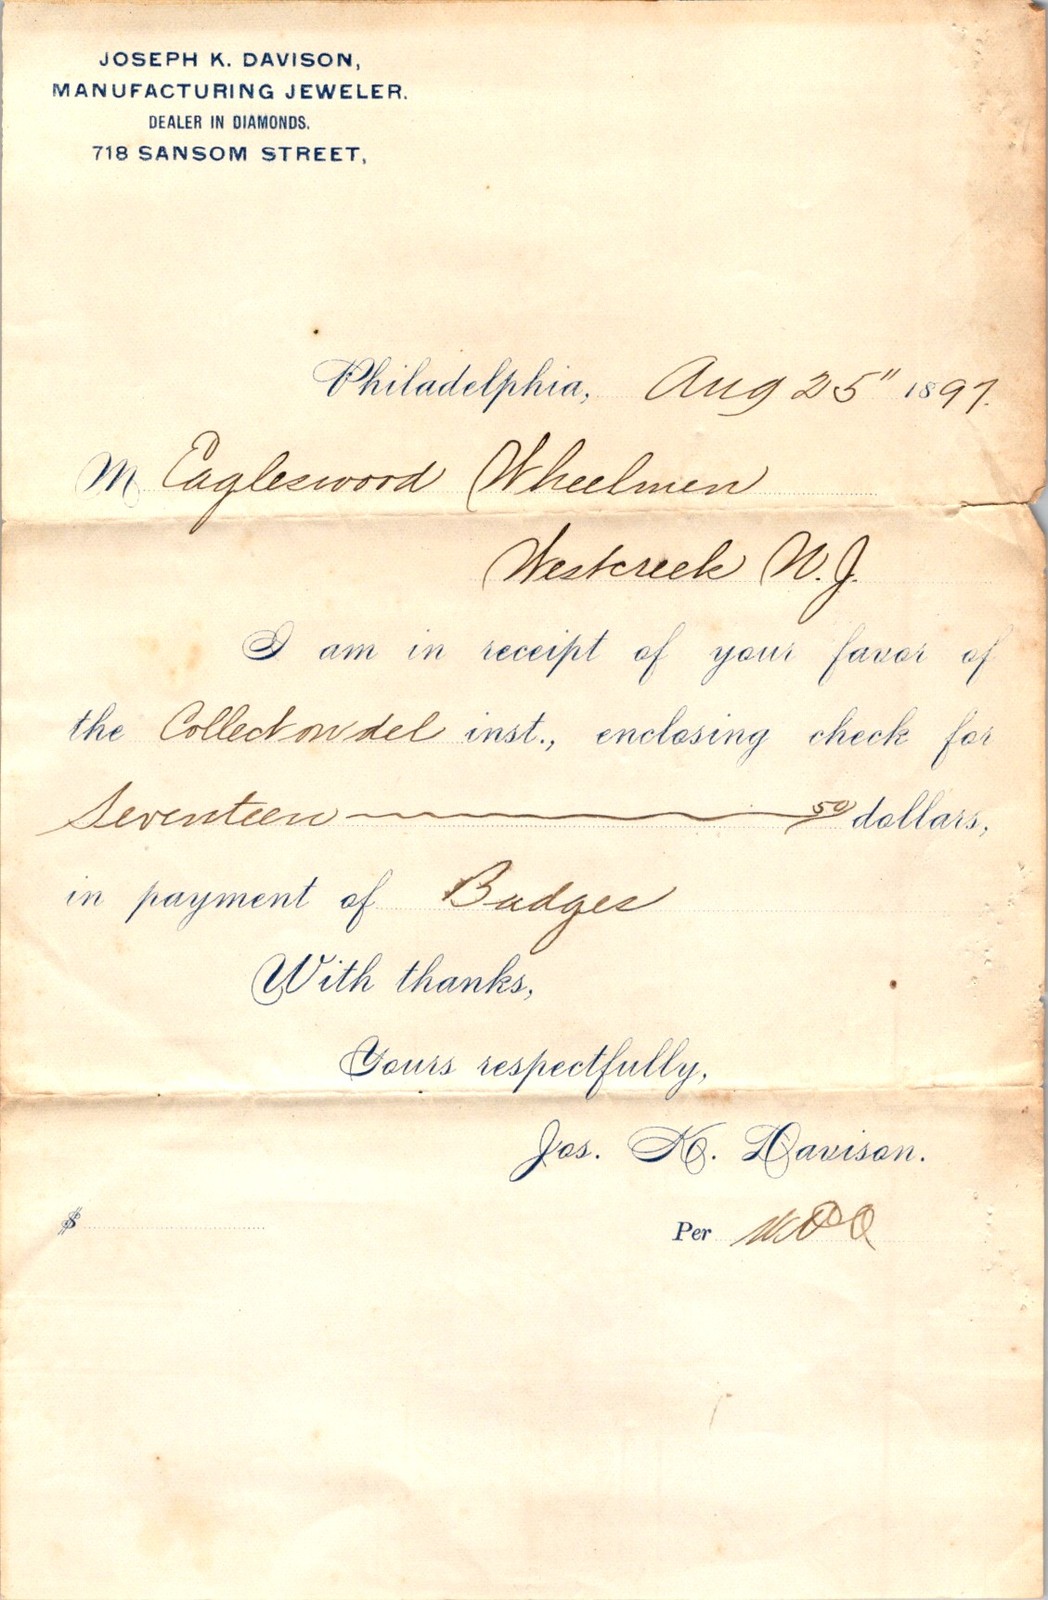 JOSEPH K. DAVISON,
MANUFACTURING JEWELER.
DEALER IN DIAMONDS.
718 SANSOM STREET,
Philadelphia, Aug 25" 1897.
M Eagleswood Wheelmen
Westcreek N.J.
I am in receipt of your favor of
the Collect on del inst., enclosing check for
Seventeen 50 dollars,
in payment of Badges
With thanks,
Yours respectfully,
Jos. K. Davison.
$
Per